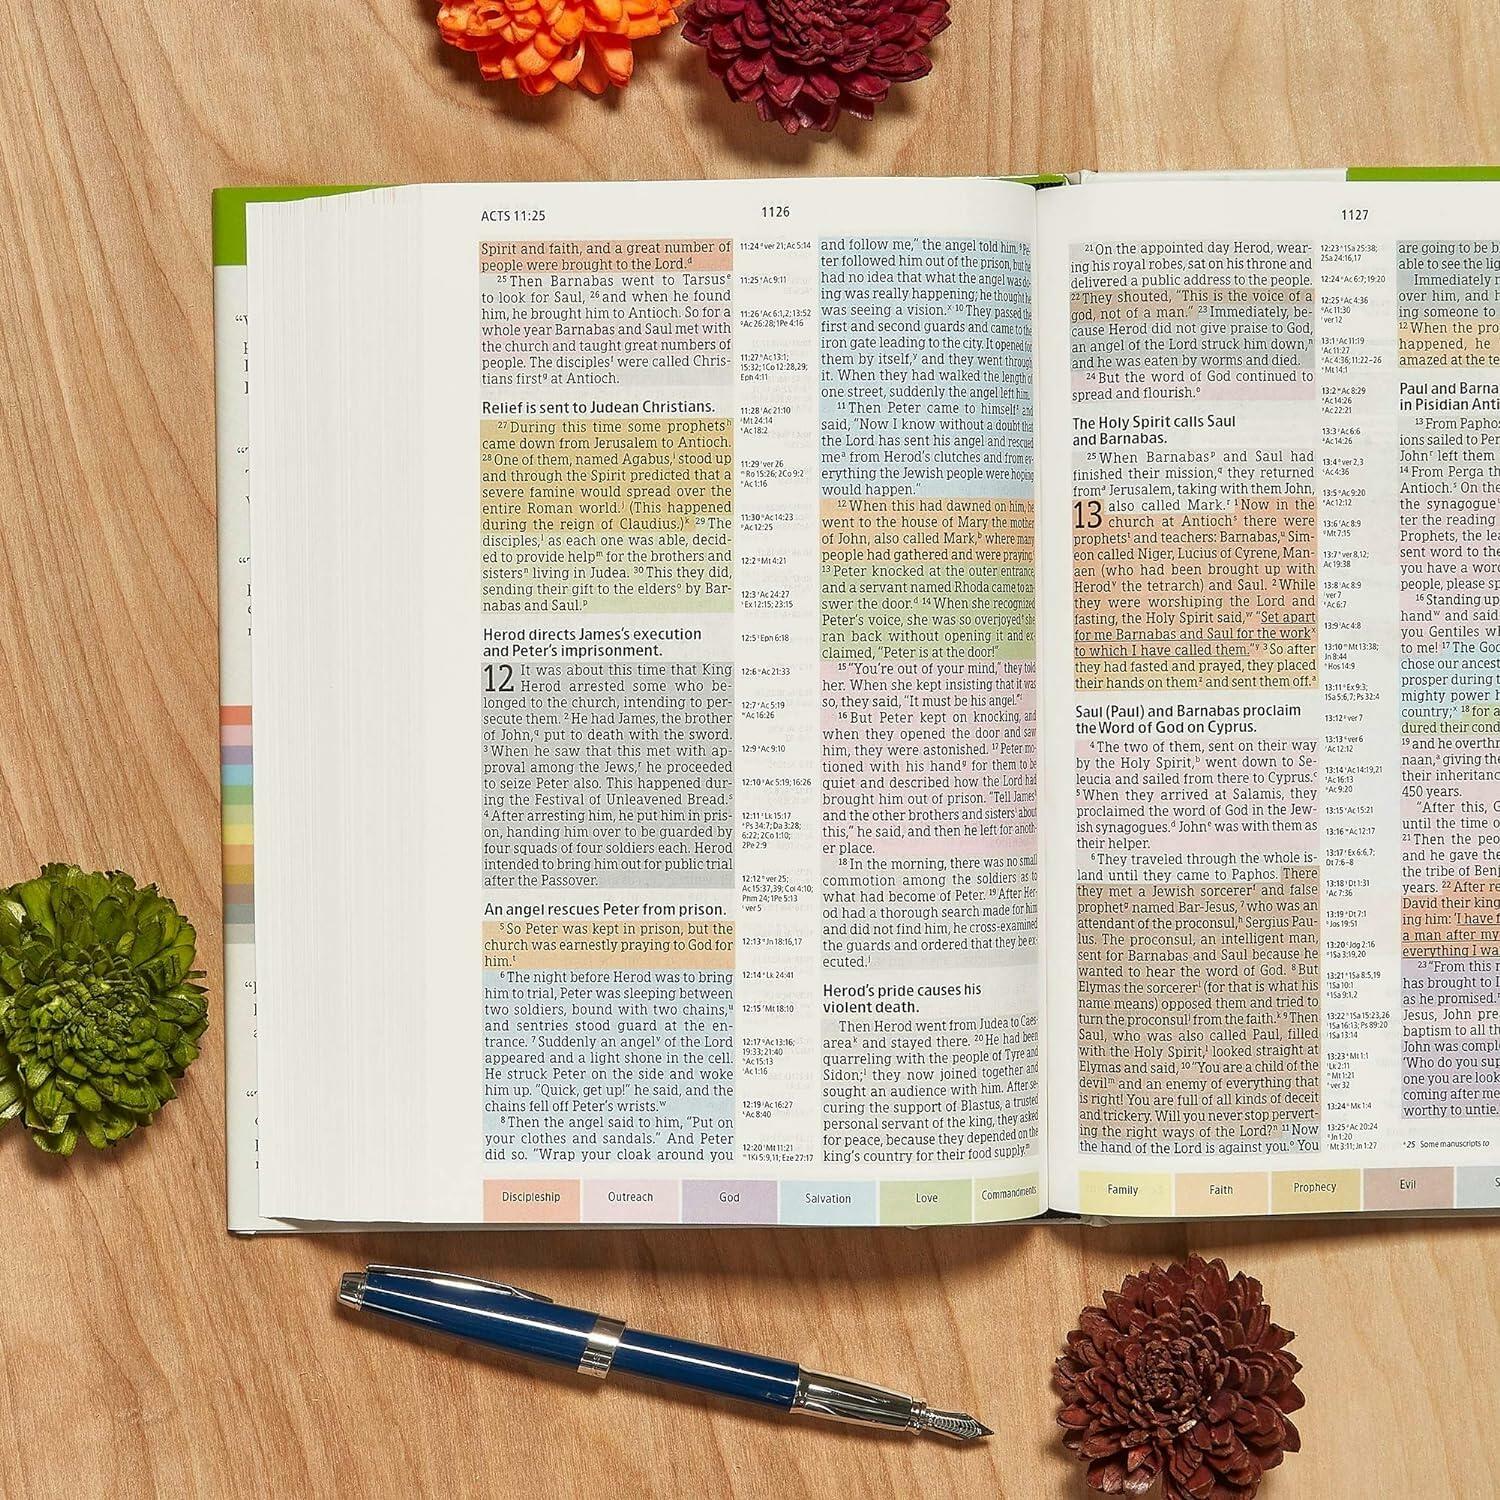 ACTS 11:25
1126
Spirit and faith, and a great number of
people were brought to the Lord.ᵈ
²⁵Then Barnabas went to Tarsusᵉ
to look for Saul, ²⁶and when he found
him, he brought him to Antioch. So for a
whole year Barnabas and Saul met with
the church and taught great numbers of
people. The disciplesᶠ were called Chris-
tians firstᵍ at Antioch.
Relief is sent to Judean Christians.
²⁷During this time some prophetsʰ
came down from Jerusalem to Antioch.
²⁸One of them, named Agabus,ⁱ stood up
and through the Spirit predicted that a
severe famine would spread over the
entire Roman world.ʲ (This happened
during the reign of Claudius.)ᵏ ²⁹The
disciples,ˡ as each one was able, decid-
ed to provide helpᵐ for the brothers and
sistersⁿ living in Judea. ³⁰This they did,
sending their gift to the eldersᵒ by Bar-
nabas and Saul.ᵖ
Herod directs James's execution
and Peter's imprisonment.
12 It was about this time that King
Herod arrested some who be-
longed to the church, intending to per-
secute them. ²He had James, the brother
of John,ᑫ put to death with the sword.
³When he saw that this met with ap-
proval among the Jews,ʳ he proceeded
to seize Peter also. This happened dur-
ing the Festival of Unleavened Bread.ˢ
⁴After arresting him, he put him in pris-
on, handing him over to be guarded by
four squads of four soldiers each. Herod
intended to bring him out for public trial
after the Passover.
An angel rescues Peter from prison.
⁵So Peter was kept in prison, but the
church was earnestly praying to God for
him.ᵗ
⁶The night before Herod was to bring
him to trial, Peter was sleeping between
two soldiers, bound with two chains,ᵘ
and sentries stood guard at the en-
trance. ⁷Suddenly an angelᵛ of the Lord
appeared and a light shone in the cell.
He struck Peter on the side and woke
him up. "Quick, get up!" he said, and the
chains fell off Peter's wrists.ʷ
⁸Then the angel said to him, "Put on
your clothes and sandals." And Peter
did so. "Wrap your cloak around you
11:24 ver 21; Ac 5:14
11:25 Ac 9:11
11:26 Ac 6:1,2; 13:52
Ac 26:28; 1Pe 4:16
11:27 Ac 13:1;
15:32; 1Co 12:28,29;
Eph 4:11
11:28 Ac 21:10
Mt 24:14
Ac 18:2
11:29 ver 26
Ro 15:26; 2Co 9:2
Ac 1:16
11:30 Ac 14:23
Ac 12:25
12:2 Mt 4:21
12:3 Ac 24:27
Ex 12:15; 23:15
12:5 Eph 6:18
12:6 Ac 21:33
12:7 Ac 5:19
Ac 16:26
12:9 Ac 9:10
12:10 Ac 5:19; 16:26
12:11 Lk 15:17
Ps 34:7; Da 3:28;
6:22; 2Co 1:10;
2Pe 2:9
12:12 ver 25;
Ac 15:37,39; Col 4:10;
Phm 24; 1Pe 5:13
ver 5
12:13 Jn 18:16,17
12:14 Lk 24:41
12:15 Mt 18:10
12:17 Ac 13:16;
19:33; 21:40
Ac 15:13
Ac 1:16
12:19 Ac 16:27
Ac 8:40
12:20 Mt 11:21
1Ki 5:9,11; Eze 27:17
and follow me," the angel told him. ⁹Pe-
ter followed him out of the prison, but he
had no idea that what the angel was do-
ing was really happening; he thought he
was seeing a vision.ˣ ¹⁰They passed the
first and second guards and came to the
iron gate leading to the city. It opened for
them by itself,ʸ and they went through
it. When they had walked the length of
one street, suddenly the angel left him.
¹¹Then Peter came to himselfᶻ and
said, "Now I know without a doubt that
the Lord has sent his angel and rescued
meᵃ from Herod's clutches and from ev-
erything the Jewish people were hoping
would happen."
¹²When this had dawned on him, he
went to the house of Mary the mother
of John, also called Mark,ᵇ where many
people had gathered and were praying.
¹³Peter knocked at the outer entrance,
and a servant named Rhoda came to an-
swer the door.ᵈ ¹⁴When she recognized
Peter's voice, she was so overjoyedᵉ she
ran back without opening it and ex-
claimed, "Peter is at the door!"
¹⁵"You're out of your mind," they told
her. When she kept insisting that it was
so, they said, "It must be his angel."ᶠ
¹⁶But Peter kept on knocking, and
when they opened the door and saw
him, they were astonished. ¹⁷Peter mo-
tioned with his handᵍ for them to be
quiet and described how the Lord had
brought him out of prison. "Tell James
and the other brothers and sisters about
this," he said, and then he left for anoth-
er place.
¹⁸In the morning, there was no small
commotion among the soldiers as to
what had become of Peter. ¹⁹After Her-
od had a thorough search made for him
and did not find him, he cross-examined
the guards and ordered that they be ex-
ecuted.ʲ
Herod's pride causes his
violent death.
Then Herod went from Judea to Caes-
areaᵏ and stayed there. ²⁰He had been
quarreling with the people of Tyre and
Sidon;ˡ they now joined together and
sought an audience with him. After se-
curing the support of Blastus, a trusted
personal servant of the king, they asked
for peace, because they depended on the
king's country for their food supply.ᵐ
Discipleship
Outreach
God
Salvation
Love
Commandments
1127
²¹On the appointed day Herod, wear-
ing his royal robes, sat on his throne and
delivered a public address to the people.
²²They shouted, "This is the voice of a
god, not of a man." ²³Immediately, be-
cause Herod did not give praise to God,
an angel of the Lord struck him down,ⁿ
and he was eaten by worms and died.
²⁴But the word of God continued to
spread and flourish.ᵒ
The Holy Spirit calls Saul
and Barnabas.
²⁵When Barnabasᵖ and Saul had
finished their mission,ᑫ they returned
fromᵃ Jerusalem, taking with them John,
13 also called Mark.ʳ ¹Now in the
church at Antiochˢ there were
prophetsᵗ and teachers: Barnabas,ᵘ Sim-
eon called Niger, Lucius of Cyrene, Man-
aen (who had been brought up with
Herodᵛ the tetrarch) and Saul. ²While
they were worshiping the Lord and
fasting, the Holy Spirit said,ʷ "Set apart
for me Barnabas and Saul for the workˣ
to which I have called them."ʸ ³So after
they had fasted and prayed, they placed
their hands on themᶻ and sent them off.ᵃ
Saul (Paul) and Barnabas proclaim
the Word of God on Cyprus.
⁴The two of them, sent on their way
by the Holy Spirit,ᵇ went down to Se-
leucia and sailed from there to Cyprus.ᶜ
⁵When they arrived at Salamis, they
proclaimed the word of God in the Jew-
ish synagogues.ᵈ Johnᵉ was with them as
their helper.
⁶They traveled through the whole is-
land until they came to Paphos. There
they met a Jewish sorcererᶠ and false
prophetᵍ named Bar-Jesus, ⁷who was an
attendant of the proconsul,ʰ Sergius Pau-
lus. The proconsul, an intelligent man,
sent for Barnabas and Saul because he
wanted to hear the word of God. ⁸But
Elymas the sorcererⁱ (for that is what his
name means) opposed them and tried to
turn the proconsulʲ from the faith.ᵏ ⁹Then
Saul, who was also called Paul, filled
with the Holy Spirit,ˡ looked straight at
Elymas and said, ¹⁰"You are a child of the
devilᵐ and an enemy of everything that
is right! You are full of all kinds of deceit
and trickery. Will you never stop pervert-
ing the right ways of the Lord?ⁿ ¹¹Now
the hand of the Lord is against you.ᵒ You
12:23 1Sa 25:38;
2Sa 24:16,17
12:24 Ac 6:7; 19:20
12:25 Ac 4:36
Ac 11:30
ver 12
13:1 Ac 11:19
Ac 11:27
Ac 4:36; 11:22-26
Mt 14:1
13:2 Ac 8:29
Ac 14:26
Ac 22:21
13:3 Ac 6:6
Ac 14:26
13:4 ver 2,3
Ac 4:36
13:5 Ac 9:20
Ac 12:12
13:6 Ac 8:9
Mt 7:15
13:7 ver 8,12;
Ac 19:38
13:8 Ac 8:9
ver 7
Ac 6:7
13:9 Ac 4:8
13:10 Mt 13:38;
Jn 8:44
Hos 14:9
13:11 Ex 9:3;
1Sa 5:6,7; Ps 32:4
13:12 ver 7
13:13 ver 6
Ac 12:12
13:14 Ac 14:19,21
Ac 16:13
Ac 9:20
13:15 Ac 15:21
13:16 Ac 12:17
13:17 Ex 6:6,7;
Dt 7:6-8
13:18 Dt 1:31
Ac 7:36
13:19 Dt 7:1
Jos 19:51
13:20 Jdg 2:16
1Sa 3:19,20
13:21 1Sa 8:5,19
1Sa 10:1
1Sa 9:1,2
13:22 1Sa 15:23,26
1Sa 16:13; Ps 89:20
1Sa 13:14
13:23 Mt 1:1
Lk 2:11
Mt 1:21
ver 32
13:24 Mk 1:4
13:25 Ac 20:24
Jn 1:20
Mt 3:11; Jn 1:27
are going to be b
able to see the lig
Immediately
over him, and h
ing someone to
¹²When the pro
happened, he
amazed at the te
Paul and Barna
in Pisidian Anti
¹³From Paphos
ions sailed to Per
John left them
¹⁴From Perga th
Antioch. On the
the synagogue
ter the reading
Prophets, the lea
sent word to the
you have a word
people, please sp
¹⁶Standing up
hand and said
you Gentiles wh
to me! ¹⁷The God
chose our ancest
prosper during t
mighty power h
country; ¹⁸for a
dured their cond
¹⁹and he overthr
naan, giving the
their inheritanc
450 years.
"After this, G
until the time o
²¹Then the peo
and he gave the
the tribe of Benj
years. ²²After re
David their king
ing him: 'I have f
a man after my
everything I wa
²³"From this m
has brought to I
as he promised.
Jesus, John pre
baptism to all th
John was comple
'Who do you sup
one you are look
coming after me
worthy to untie.
25 Some manuscripts to
Family
Faith
Prophecy
Evil
S